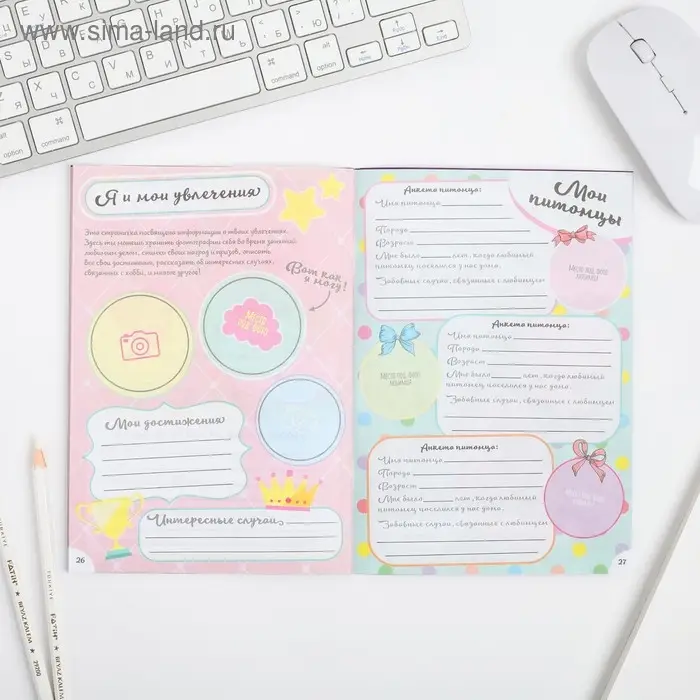 www.sima-land.ru
command
option
alt
command
option
alt
Я и мои увлечения
Эта страничка посвящена информации о твоих увлечениях.
Здесь ты можешь хранить фотографии себя во время занятий
любимым делом, снимки своих наград и призов, описать
все свои достижения, рассказать об интересных случаях,
связанных с хобби, и многое другое!
Вот как
я могу!
Место
для фото
Мои достижения
Интересные случаи
26
Мои
питомцы
Анкета питомца:
Имя питомца
Порода
Возраст
Мне было лет, когда любимый
питомец поселился у нас дома.
Забавные случаи, связанные с любимцем
Место под фото
Анкета питомца:
Имя питомца
Порода
Возраст
Мне было лет, когда любимый
питомец поселился у нас дома.
Забавные случаи, связанные с любимцем
Место под фото
Анкета питомца:
Имя питомца
Порода
Возраст
Мне было лет, когда любимый
питомец поселился у нас дома.
Забавные случаи, связанные с любимцем
27
FATIH
FATIH